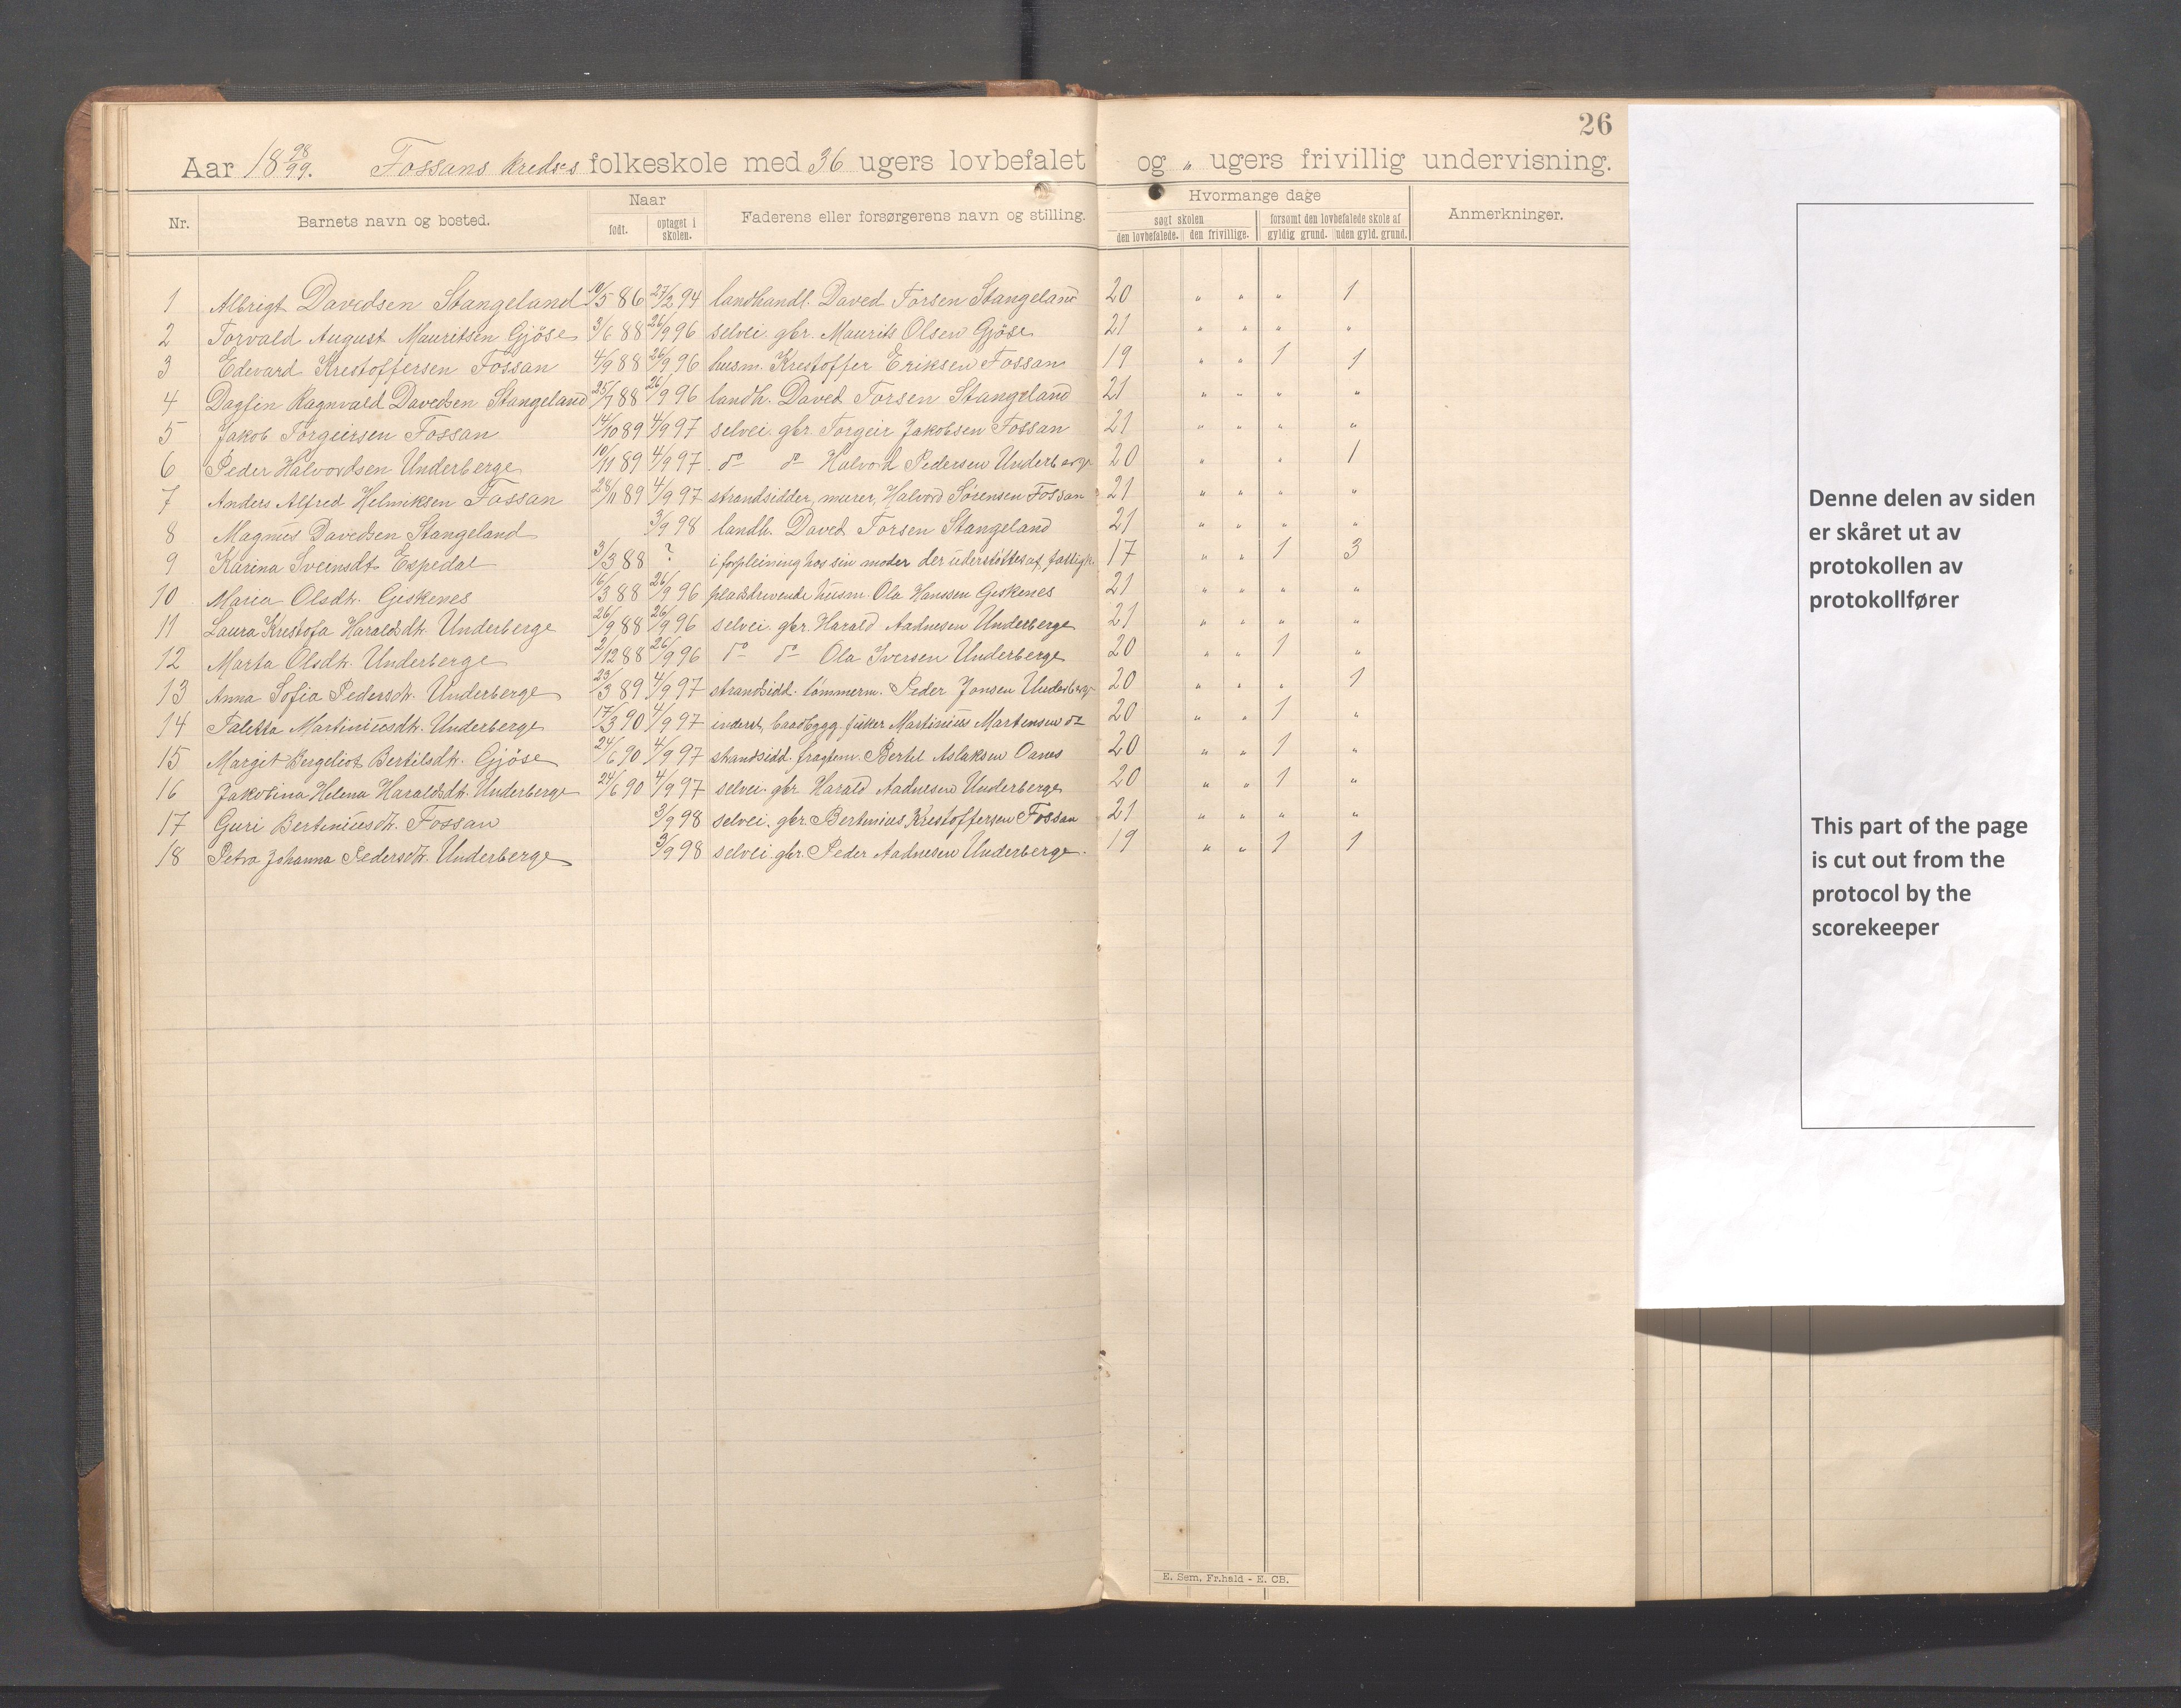 26
Aar 18 98/99. Fossans kredses folkeskole med 36 ugers lovbefalet og " ugers frivillig undervisning.
Nr. Barnets navn og bosted. Naar Faderens eller forsørgerens navn og stilling. Hvormange dage Anmerkninger.
født. optaget i skolen. søgt skolen forsømt den lovbefalede skole af
den lovbefalede. den frivillige. gyldig grund. uden gyld. grund.
1 Albrigt Davedsen Stangeland 10/5 86 27/2 94 landhandl. Daved Torsen Stangeland 20 " " " 1
2 Torvald August Mauritsen Gjöse 3/6 88 26/9 96 selvei. gbr. Maurits Olsen Gjöse 21 " " " "
3 Edevard Krestoffersen Fossan 4/9 88 26/9 96 husm. Krestoffer Eriksen Fossan 19 " " 1 1
4 Dagfin Ragnvald Davedsen Stangeland 25/7 88 26/9 96 landh. Daved Torsen Stangeland 21 " " " "
5 Jakob Torgeirsen Fossan 14/10 89 4/9 97 selvei. gbr. Torgeir Jakobsen Fossan 21 " " " "
6 Peder Halvordsen Underberge 10/11 89 4/9 97 do do Halvord Pedersen Underberge 20 " " 1
7 Anders Alfred Helmiksen Fossan 28/11 89 4/9 97 strandsidder, murer, Halvord Sörensen Fossan 21 " " " "
8 Magnus Davedsen Stangeland 3/9 98 landh. Daved Torsen Stangeland 21 " " " "
9 Karina Sveensdt. Espedal 3/3 88 ? i forpleining hos sin moder der understöttes af fattigk. 17 " " 1 3
10 Maria Olsdtr. Geskenes 6/3 88 26/9 96 pladsbrugende husm. Ola Hanssen Geskenes 21 " " " "
11 Laura Krestofa Haraldsdtr. Underberge 26/9 88 26/9 96 selvei. gbr. Harald Aadnesen Underberge 21 " " " "
12 Marta Olsdtr. Underberge 2/12 88 26/9 96 do do Ola Iversen Underberge 20 " " 1 "
13 Anna Sofia Pedersdtr. Underberge 23/3 89 4/9 97 strandsidd. tömmerm. Peder Jonsen Underberge 20 " " " 1
14 Taletta Martiniusdtr. Underberge 17/3 90 4/9 97 inderst, baadbygg. fisker Martinius Martensen do 20 " " 1 "
15 Margit Bergeliot Bertilsdtr. Gjöse 24/6 90 4/9 97 strandsidd. fragtem. Bertel Aslaksen Oanes 20 " " 1 "
16 Jakobina Helena Haraldsdtr. Underberge 24/6 90 4/9 97 selvei. gbr. Harald Aadnesen Underberge 20 " " 1 "
17 Guri Berteniusdtr. Fossan 3/9 98 selvei. gbr. Bertenius Krestoffersen Fossan 21 " " " "
18 Petra Johanna Pedersdtr. Underberge 3/9 98 selvei. gbr. Peder Aadnesen Underberge. 19 " " 1 1
E. Sem, Fr.hald - E. CB.
Denne delen av siden
er skåret ut av
protokollen av
protokollfører
This part of the page
is cut out from the
protocol by the
scorekeeper